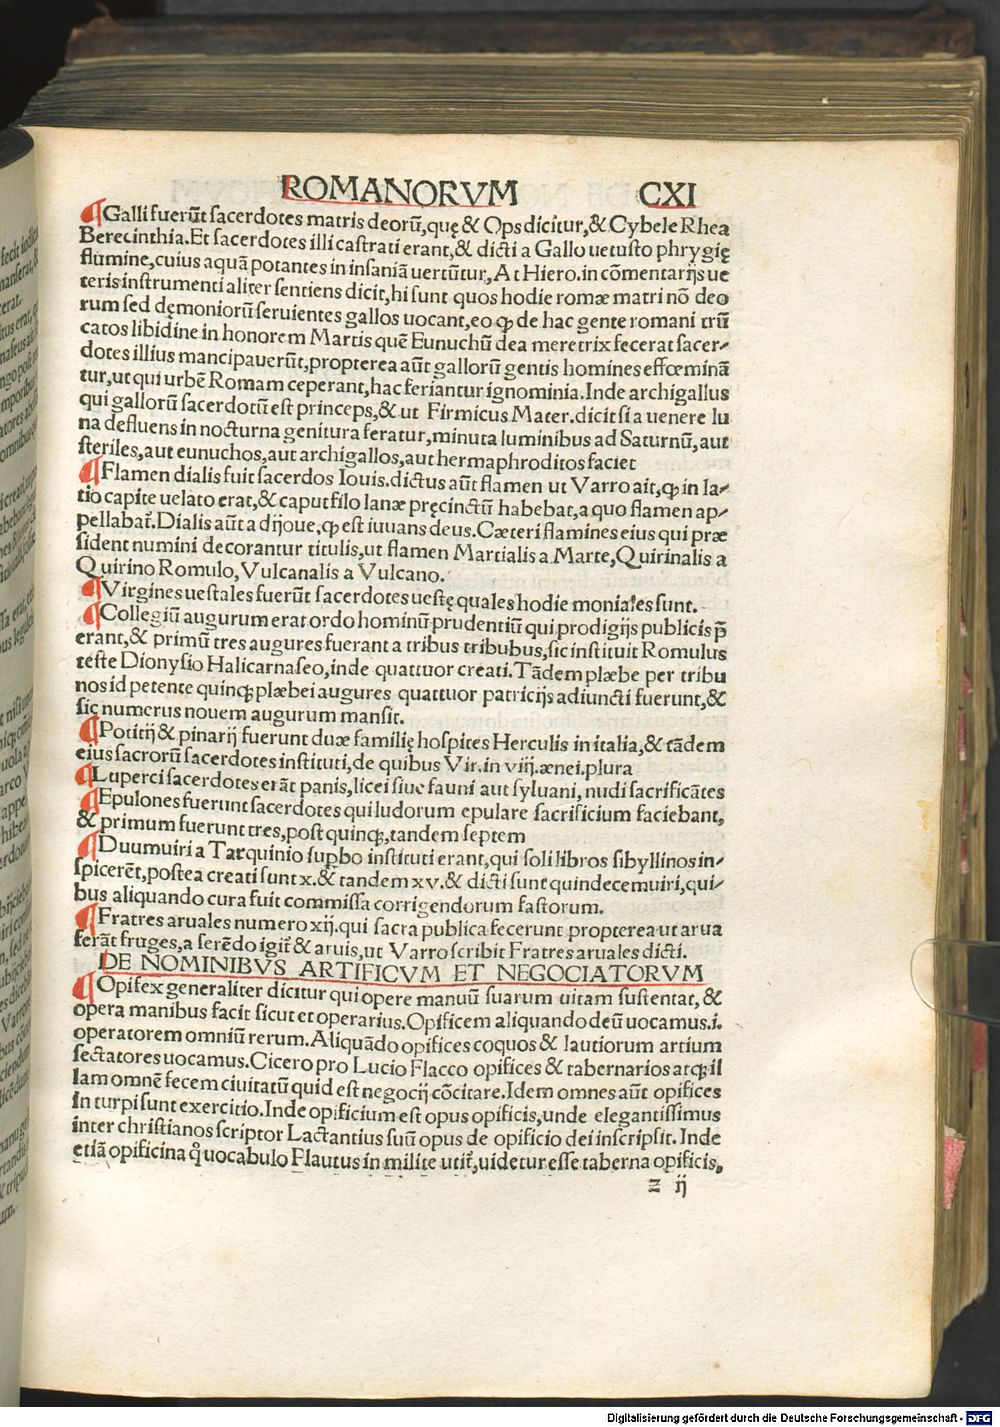 ROMANORVM CXI
¶Galli fuerūt sacerdotes matris deorū,quę & Ops dicitur,& Cybele Rhea
Berecinthia.Et sacerdotes illi castrati erant,& dicti a Gallo uetusto phrygię
flumine,cuius aquā potantes in insaniā uertūtur,At Hiero.in cōmentarijs ue
teris instrumenti aliter sentiens dicit,hi sunt quos hodie romæ matri nō deo
rum sed dęmoniorū seruientes gallos uocant,eo ꝙ de hac gente romani trū
catos libidine in honorem Martis quē Eunuchū dea meretrix fecerat sacer-
dotes illius mancipauerūt,propterea aūt gallorū gentis homines effœminā
tur,ut qui urbē Romam ceperant,hac feriantur ignominia.Inde archigallus
qui gallorū sacerdotū est princeps,& ut Firmicus Mater.dicit si a uenere lu
na defluens in nocturna genitura feratur,minuta luminibus ad Saturnū,aut
steriles,aut eunuchos,aut archigallos,aut hermaphroditos faciet
¶Flamen dialis fuit sacerdos Iouis.dictus aūt flamen ut Varro ait,ꝙ in la-
tio capite uelato erat,& caput filo lanæ pręcinctū habebat,a quo flamen ap-
pellabat̄.Dialis aūt a dijoue,ꝙ est iuuans deus.Cæteri flamines eius qui præ
sident numini decorantur titulis,ut flamen Martialis a Marte,Quirinalis a
Quirino Romulo,Vulcanalis a Vulcano.
¶Virgines uestales fuerūt sacerdotes uestę quales hodie moniales sunt.
¶Collegiū augurum erat ordo hominū prudentiū qui prodigijs publicis p̄
erant,& primū tres augures fuerant a tribus tribubus,sic instituit Romulus
teste Dionysio Halicarnaseo,inde quattuor creati.Tādem plæbe per tribu
nos id petente quinqꝫ plæbei augures quattuor patricijs adiuncti fuerunt,&
sic numerus nouem augurum mansit.
¶Potitij & pinarij fuerunt duæ familię hospites Herculis in italia,& tādem
eius sacrorū sacerdotes instituti,de quibus Vir.in viij.ænei.plura
¶Luperci sacerdotes erāt panis,licei siue fauni aut syluani,nudi sacrificātes
¶Epulones fuerunt sacerdotes qui ludorum epulare sacrificium faciebant,
& primum fuerunt tres,post quinqꝫ,tandem septem
¶Duumuiri a Tarquinio supbo instituti erant,qui soli libros sibyllinos in-
spicerēt,postea creati sunt x.& tandem xv.& dicti sunt quindecemuiri,qui-
bus aliquando cura fuit commissa corrigendorum fastorum.
¶Fratres aruales numero xij.qui sacra publica fecerunt propterea ut arua
ferāt fruges,a ferēdo igit̄ & aruis,ut Varro scribit Fratres aruales dicti.
DE NOMINIBVS ARTIFICVM ET NEGOCIATORVM
¶Opifex generaliter dicitur qui opere manuū suarum uitam sustentat,&
opera manibus facit sicut et operarius.Opificem aliquando deū uocamus.i.
operatorem omniū rerum.Aliquādo opifices coquos & lautiorum artium
sectatores uocamus.Cicero pro Lucio Flacco opifices & tabernarios atqꝫ il
lam omnē fecem ciuitatū quid est negocij cōcitare.Idem omnes aūt opifices
in turpi sunt exercitio.Inde opificium est opus opificis,unde elegantissimus
inter christianos scriptor Lactantius suū opus de opificio dei inscripsit.Inde
etiā opificina q̄ uocabulo Plautus in milite utit̄,uidetur esse taberna opificis,
z ij
Digitalisierung gefördert durch die Deutsche Forschungsgemeinschaft - DFG